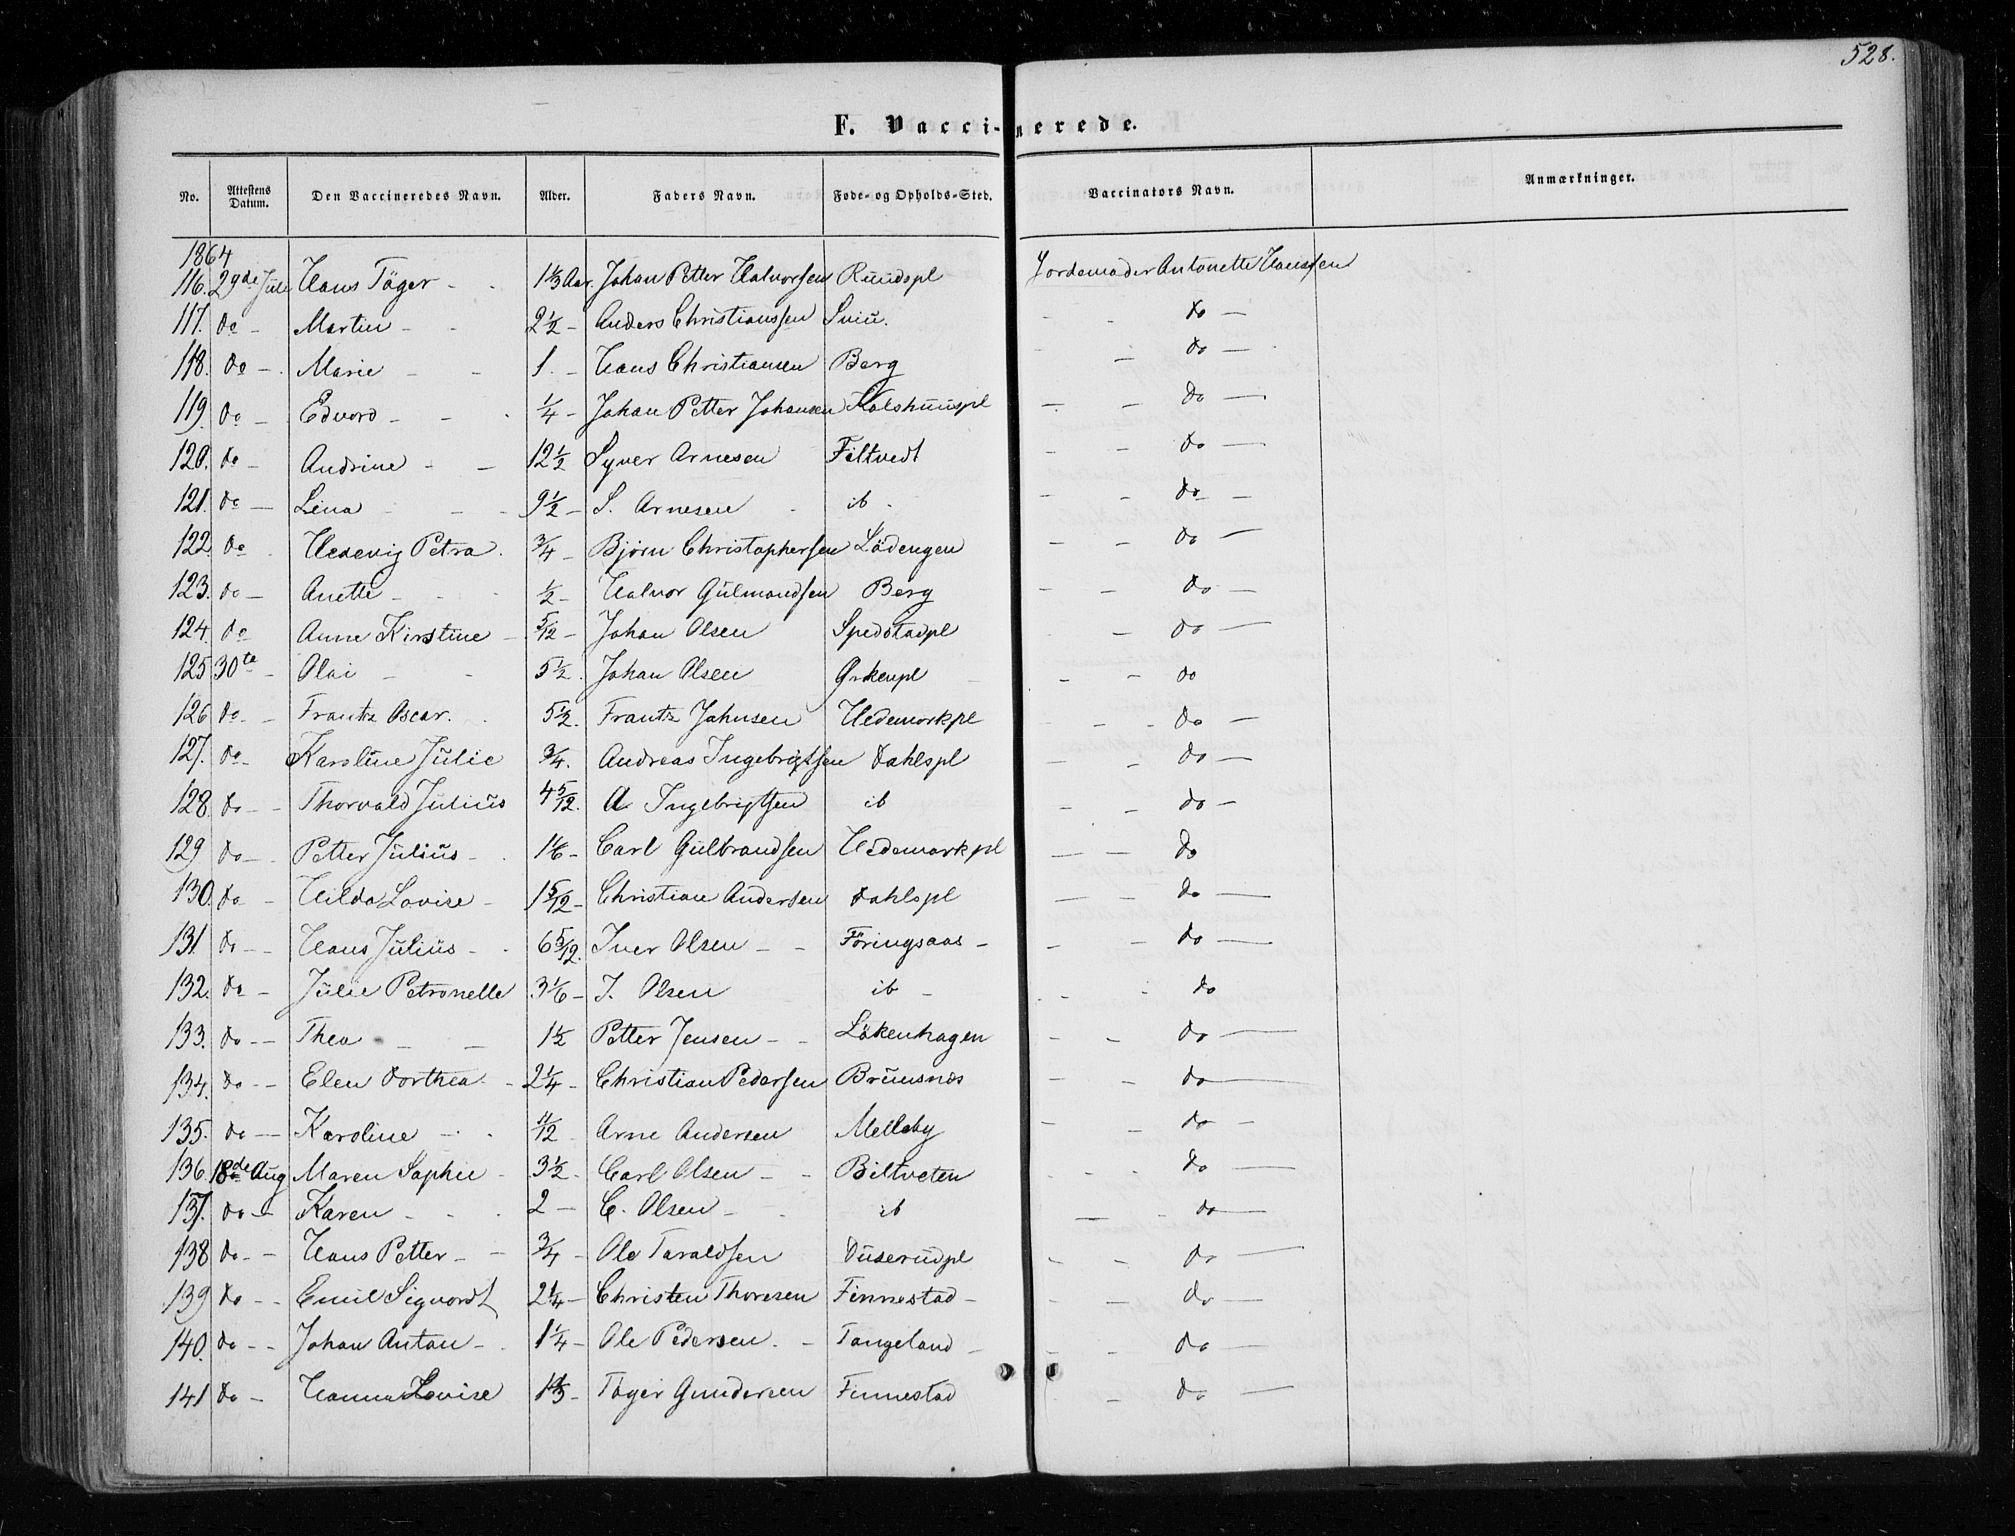 528.
F. Vaccinerede.
No. Attestens Datum. Den Vaccineredes Navn. Alder. Faders Navn. Føde- og Opholds-Sted. Vaccinators Navn. Anmærkninger.
1864
116. 29de Juli Hans Töger - - 1 1/3 Aar. Johan Petter Halvorsen Ruudspl Jordemoder Antonette Hanssen
117. do - Martin - - 2 1/2 - Anders Christianssen - - do -
118. do - Marie - - 1. - Hans Christiansen Berg - - do -
119. do - Edvard - - 1/4 - Johan Petter Johansen Kolshuuspl - - do -
120. do - Andrine - - 12 1/2 Syver Arnesen Filtvedt - - do -
121. do - Lina - - 9 1/2 - S. Arnesen - ib - - - do -
122. do Hedevig Petra. 3/4 - Bjørn Christophersen Lödengen - - do -
123. do - Anette - - 1/2 - Halvor Gulmandsen Berg - - do -
124. do Anne Kirstine - 5/12 - Johan Olsen Spedstadpl - do -
125. 30te - Olai - - 5 1/2. Johan Olsen Ørkenpl - - do
126. do - Frantz Oscar. 5 1/2. Frantz Jahnsen Hedemarkpl - - do -
127. do - Karoline Julie 3/4. Andreas Ingebrigtsen Dahlspl - - do -
128. do - Thorvald Julius 4 5/12. A Ingebrigtsen ib - - do -
129 do - Petter Julius - 1 1/6 - Carl Gulbrandsen Hedemarkpl - - do
130. do - Hilda Lovise - 1 5/12 - Christian Andersen Dahlspl - - do -
131. do - Hans Julius - 6 5/12. Iver Olsen - - Föringsaas - - - do -
132. do - Julie Petronelle 3 1/6 - I. Olsen ib - - - do
133. do - Thea - - 1 1/2 Petter Jensen - - Lökenhagen - - do -
134. do - Elen Dorthea. - 2 1/4 - Christian Pedersen Bruusnæs - - do -
135. do - Karoline - - 11/12 Arne Andersen Melleby - - do -
136. 18de Aug Maren Sophie - 3 1/2 - Carl Olsen - - Biltveten - - do -
137. do - Karen - - 2 - C. Olsen - ib - - do -
138 do - Hans Petter - - 3/4 - Ole Taraldsen Duserudpl - - do -
139 do - Emil Sigvardt 2 1/4 - Christen Thoresen Finnestad - - - do -
140. do - Johan Anton - 1 1/4 - Ole Pedersen. - Tangeland - - - do -
141 do - Hanna Lovise 1 1/3 - Töger Gundersen Finnestad - do -